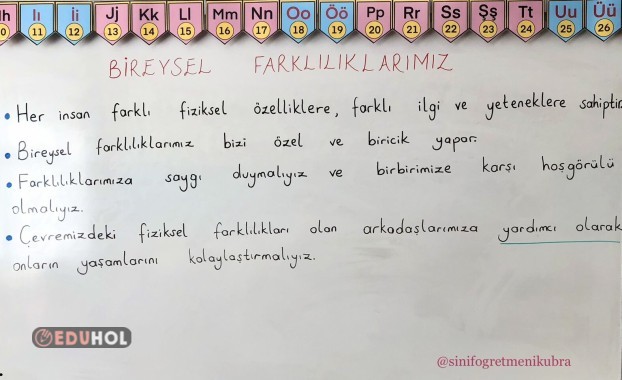 h Iı İi Jj Kk Ll Mm Nn Oo Öö Pp Rr Ss Şş Tt Uu Üü
0 11 12 13 14 15 16 17 18 19 20 21 22 23 24 25 26
BİREYSEL FARKLILIKLARIMIZ
• Her insan farklı fiziksel özelliklere, farklı ilgi ve yeteneklere sahiptir
• Bireysel farklılıklarımız bizi özel ve biricik yapar.
• Farklılıklarımıza saygı duymalıyız ve birbirimize karşı hoşgörülü
olmalıyız.
• Çevremizdeki fiziksel farklılıkları olan arkadaşlarımıza yardımcı olarak
onların yaşamlarını kolaylaştırmalıyız.
EDUHOL
@sinifogretmenikubra